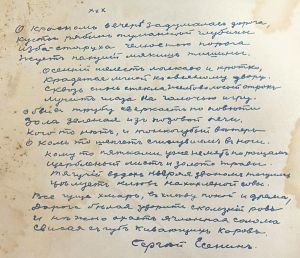 ***
О красном вечере задумалась дорога,
Кусты рябин туманней глубины.
Изба-старуха челюстью порога
Жует пахучий мякиш тишины.
Осенний холод ласково и кротко
Крадется мглой к овсяному двору;
Сквозь синь стекла желтоволосый отрок
Лучит глаза на галочью игру.
Обняв трубу, сверкает по повети
Зола зеленая из розовой печи.
Кого-то нет, и тонкогубый ветер
О ком-то шепчет, сгинувшем в ночи.
Кому-то пятками уже не мять по рощам
Щербленый лист и золото травы.
Тягучий вздох, ныряя звоном тощим,
Целует клюв нахохленной совы.
Все гуще хмарь, в хлеву покой и дрема,
Дорога белая узорит скользкий ров...
И нежно охает ячменная солома,
Свисая с губ кивающих коров.
Сергей Есенин